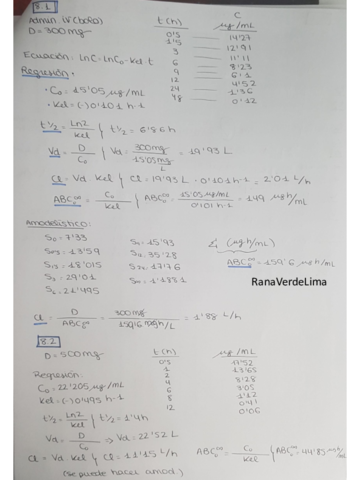 8.1.
Admin. IV (bolo)
D = 300 mg
t (h) C μg/mL
0'5 14'27
1'5 12'91
3 11'11
6 8'23
9 6'1
12 4'52
24 1'36
48 0'12
Ecuación: LnC = LnC₀ - Kel·t
Regresión:
· C₀ = 15'05 μg/mL
· Kel = (-)0'101 h⁻¹
t1/2 = Ln2/Kel } t1/2 = 6'86 h
Vd = D/C₀ } Vd = 300mg/15'05mg/L = 19'93 L
Cl = Vd · Kel } Cl = 19'93 L · 0'101 h⁻¹ = 2'01 L/h
ABC₀∞ = C₀/Kel } ABC₀∞ = 15'05 μg/mL/0'101 h⁻¹ = 149 μg h/mL
Amodelístico:
S₀ = 7'33
= 13'59
= 18'015
= 29'01
= 21'495
= 15'93
= 35'28
= 17'76
= 1'1881
Σ (μg h/mL)
ABC₀∞ = 159'6 μg h/mL
RanaVerdeLima
Cl = D/ABC₀∞ = 300mg/159'6 mg h/L = 1'88 L/h
8.2.
D = 500 mg
t (h) μg/mL
0'5 17'52
1 13'65
2 8'28
4 3'05
6 1'12
8 0'41
12 0'06
Regresión:
C₀ = 22'205 μg/mL
Kel = (-)0'495 h⁻¹
t1/2 = Ln2/Kel } t1/2 = 1'4 h
Vd = D/C₀ ⇒ Vd = 22'52 L
Cl = Vd · Kel } Cl = 11'15 L/h
ABC₀∞ = C₀/Kel } ABC₀∞ = 44'85 μg h/mL
(se puede hacer amod.)